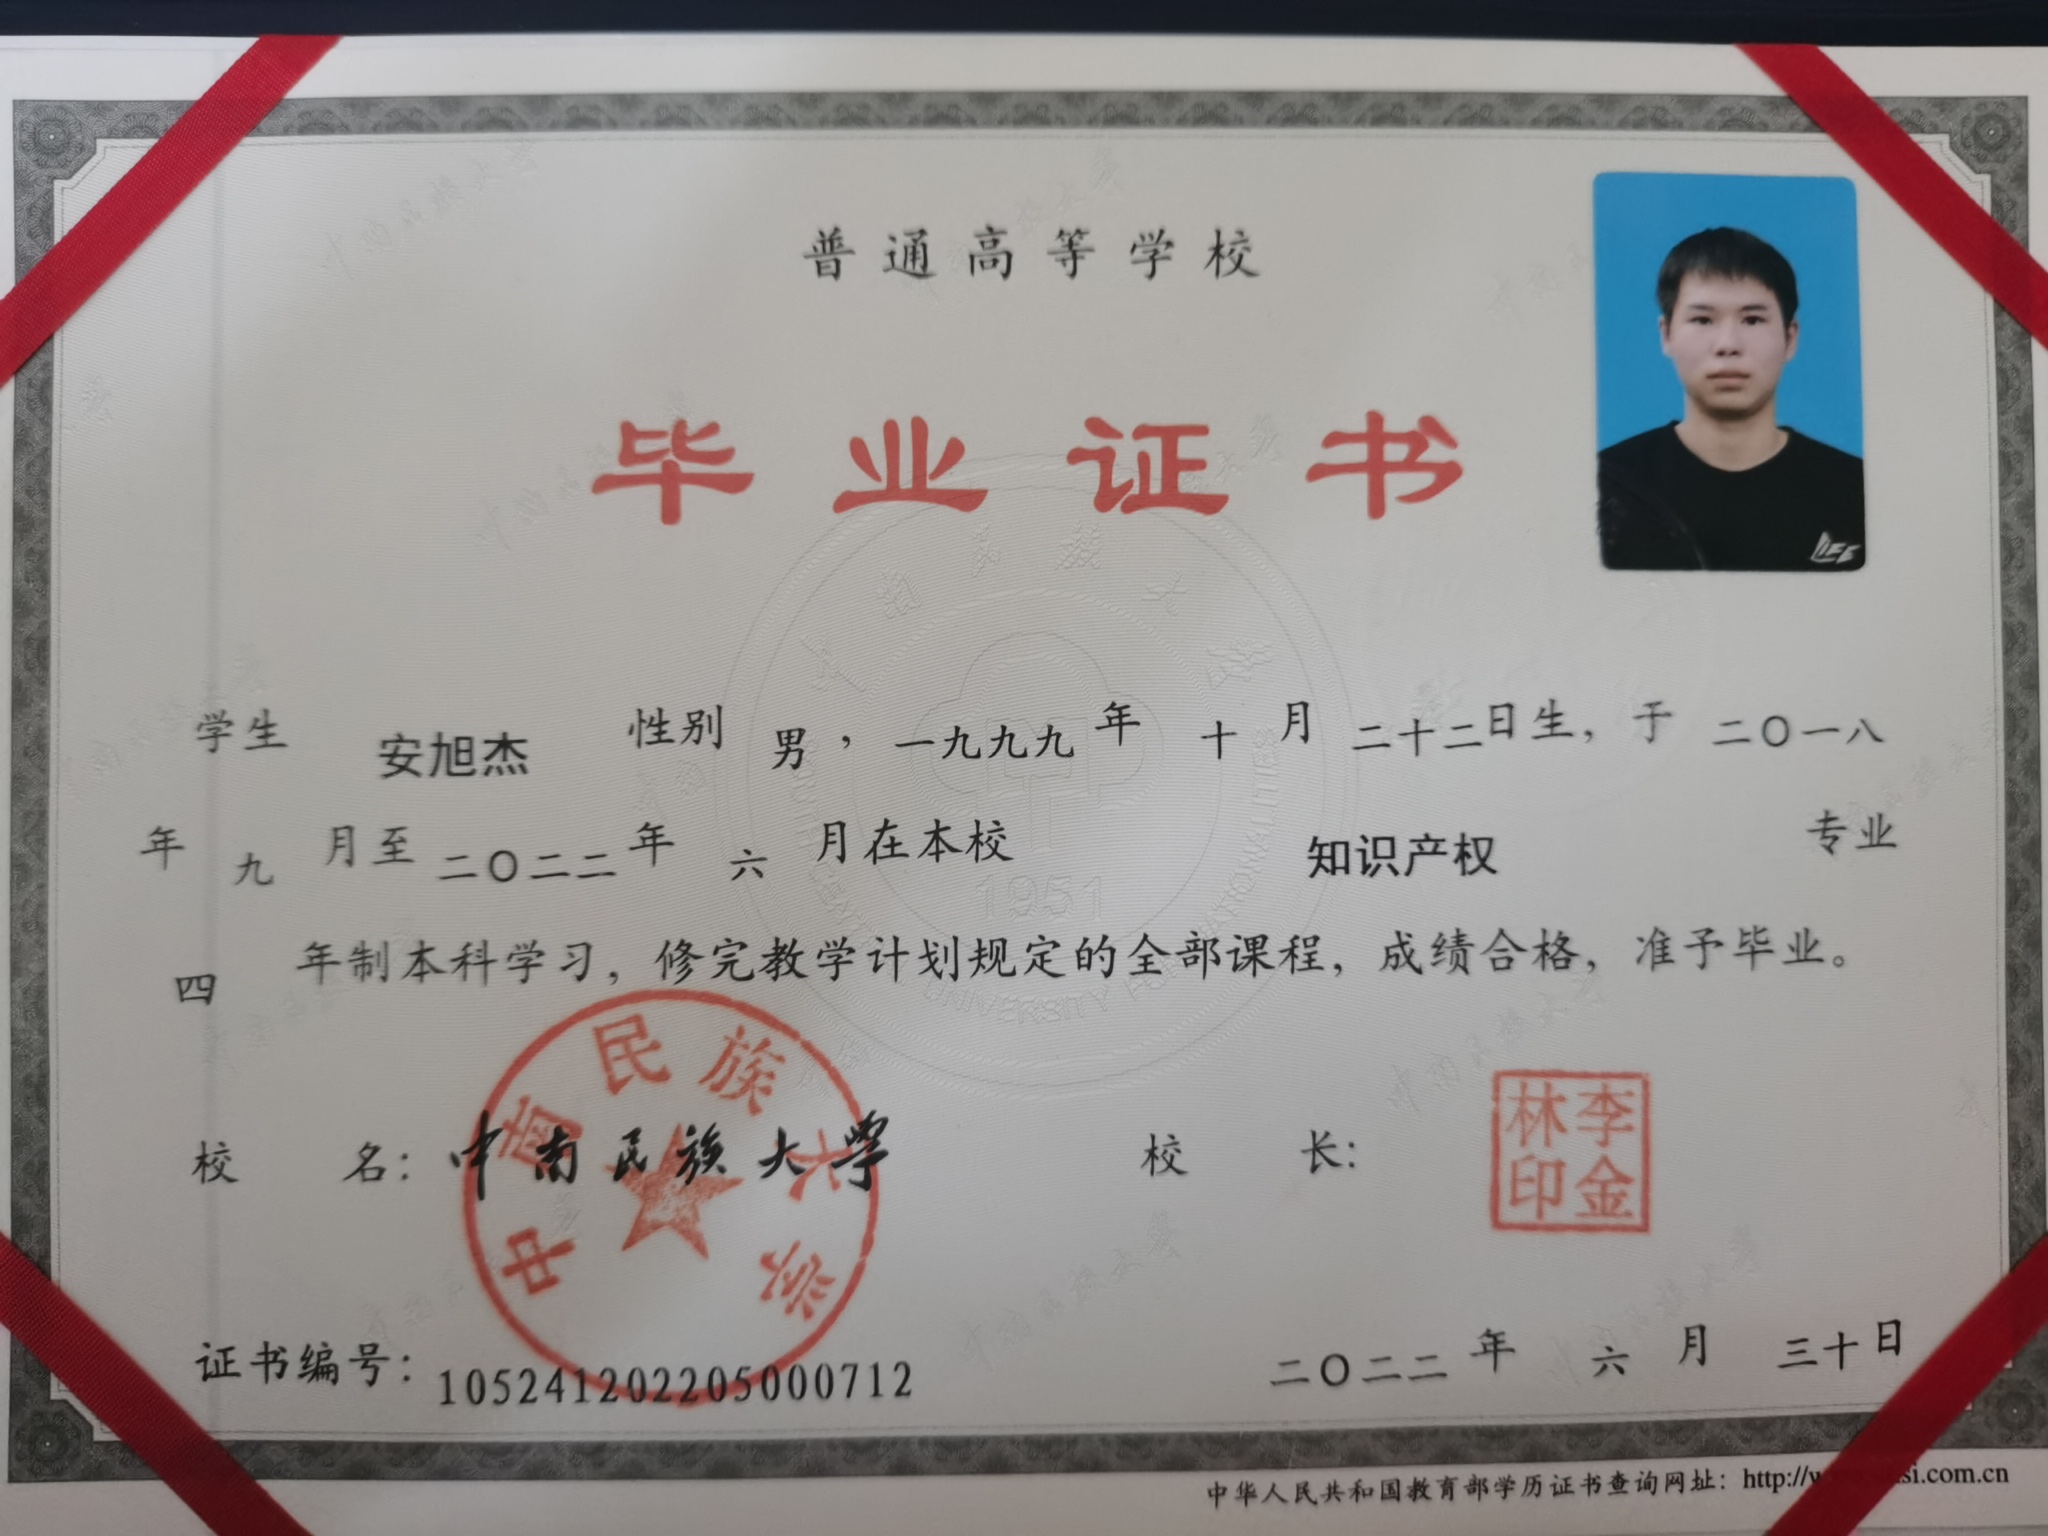 普通高等学校
毕业证书
学生 安旭杰 性别 男，一九九九年 十 月 二十二日生，于 二〇一八
年 九 月至 二〇二二 年 六 月在本校 知识产权 专业
四 年制本科学习，修完教学计划规定的全部课程，成绩合格，准予毕业。
校 名：中南民族大学 校 长：
中南民族大学
李金林印
1951
证书编号：105241202205000712 二〇二二 年 六 月 三十日
中华人民共和国教育部学历证书查询网址：http://
si.com.cn